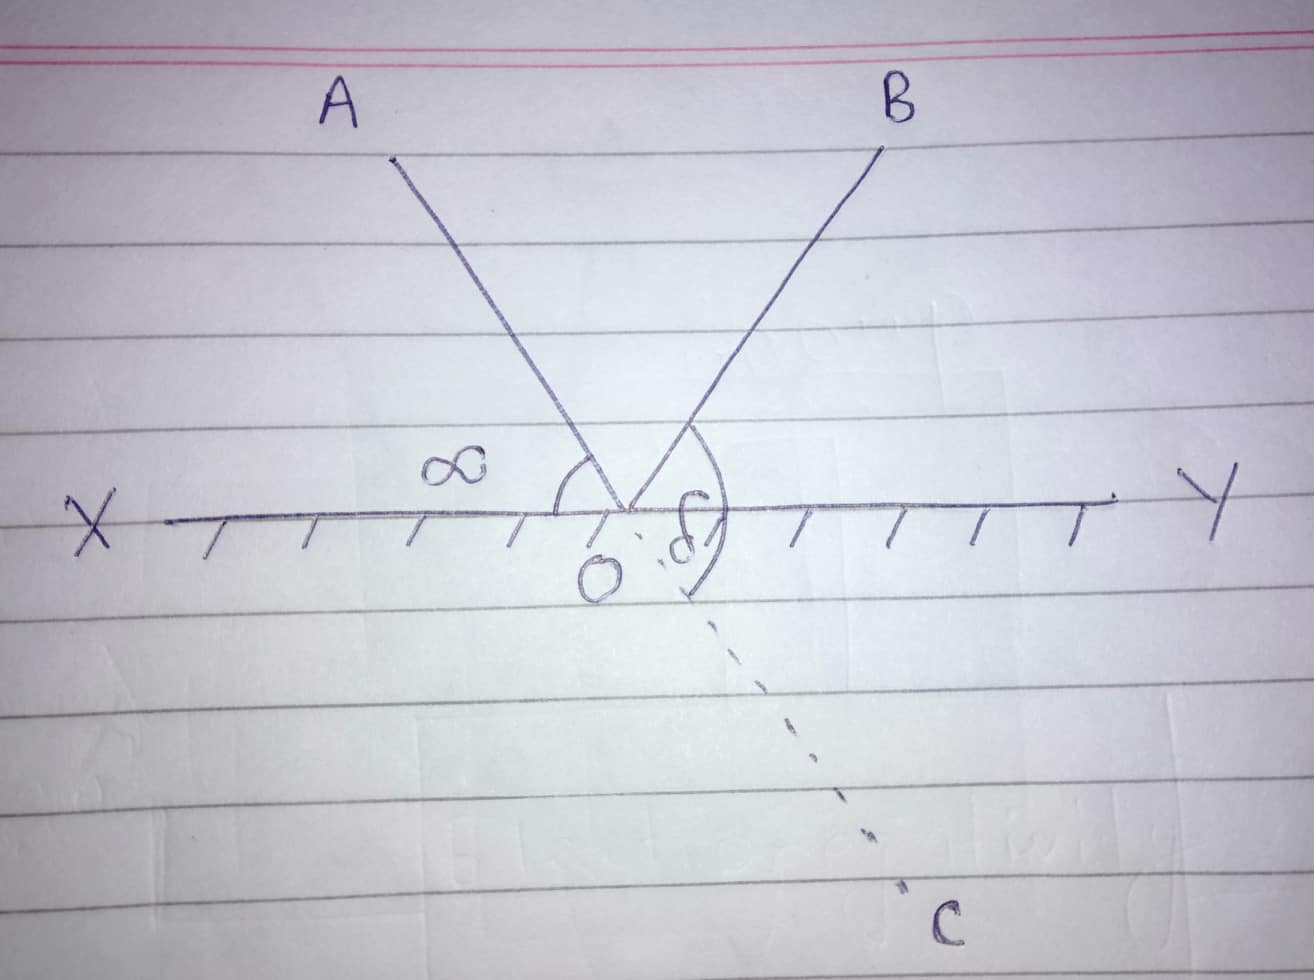 A B
∞
X Y
δ
O
C